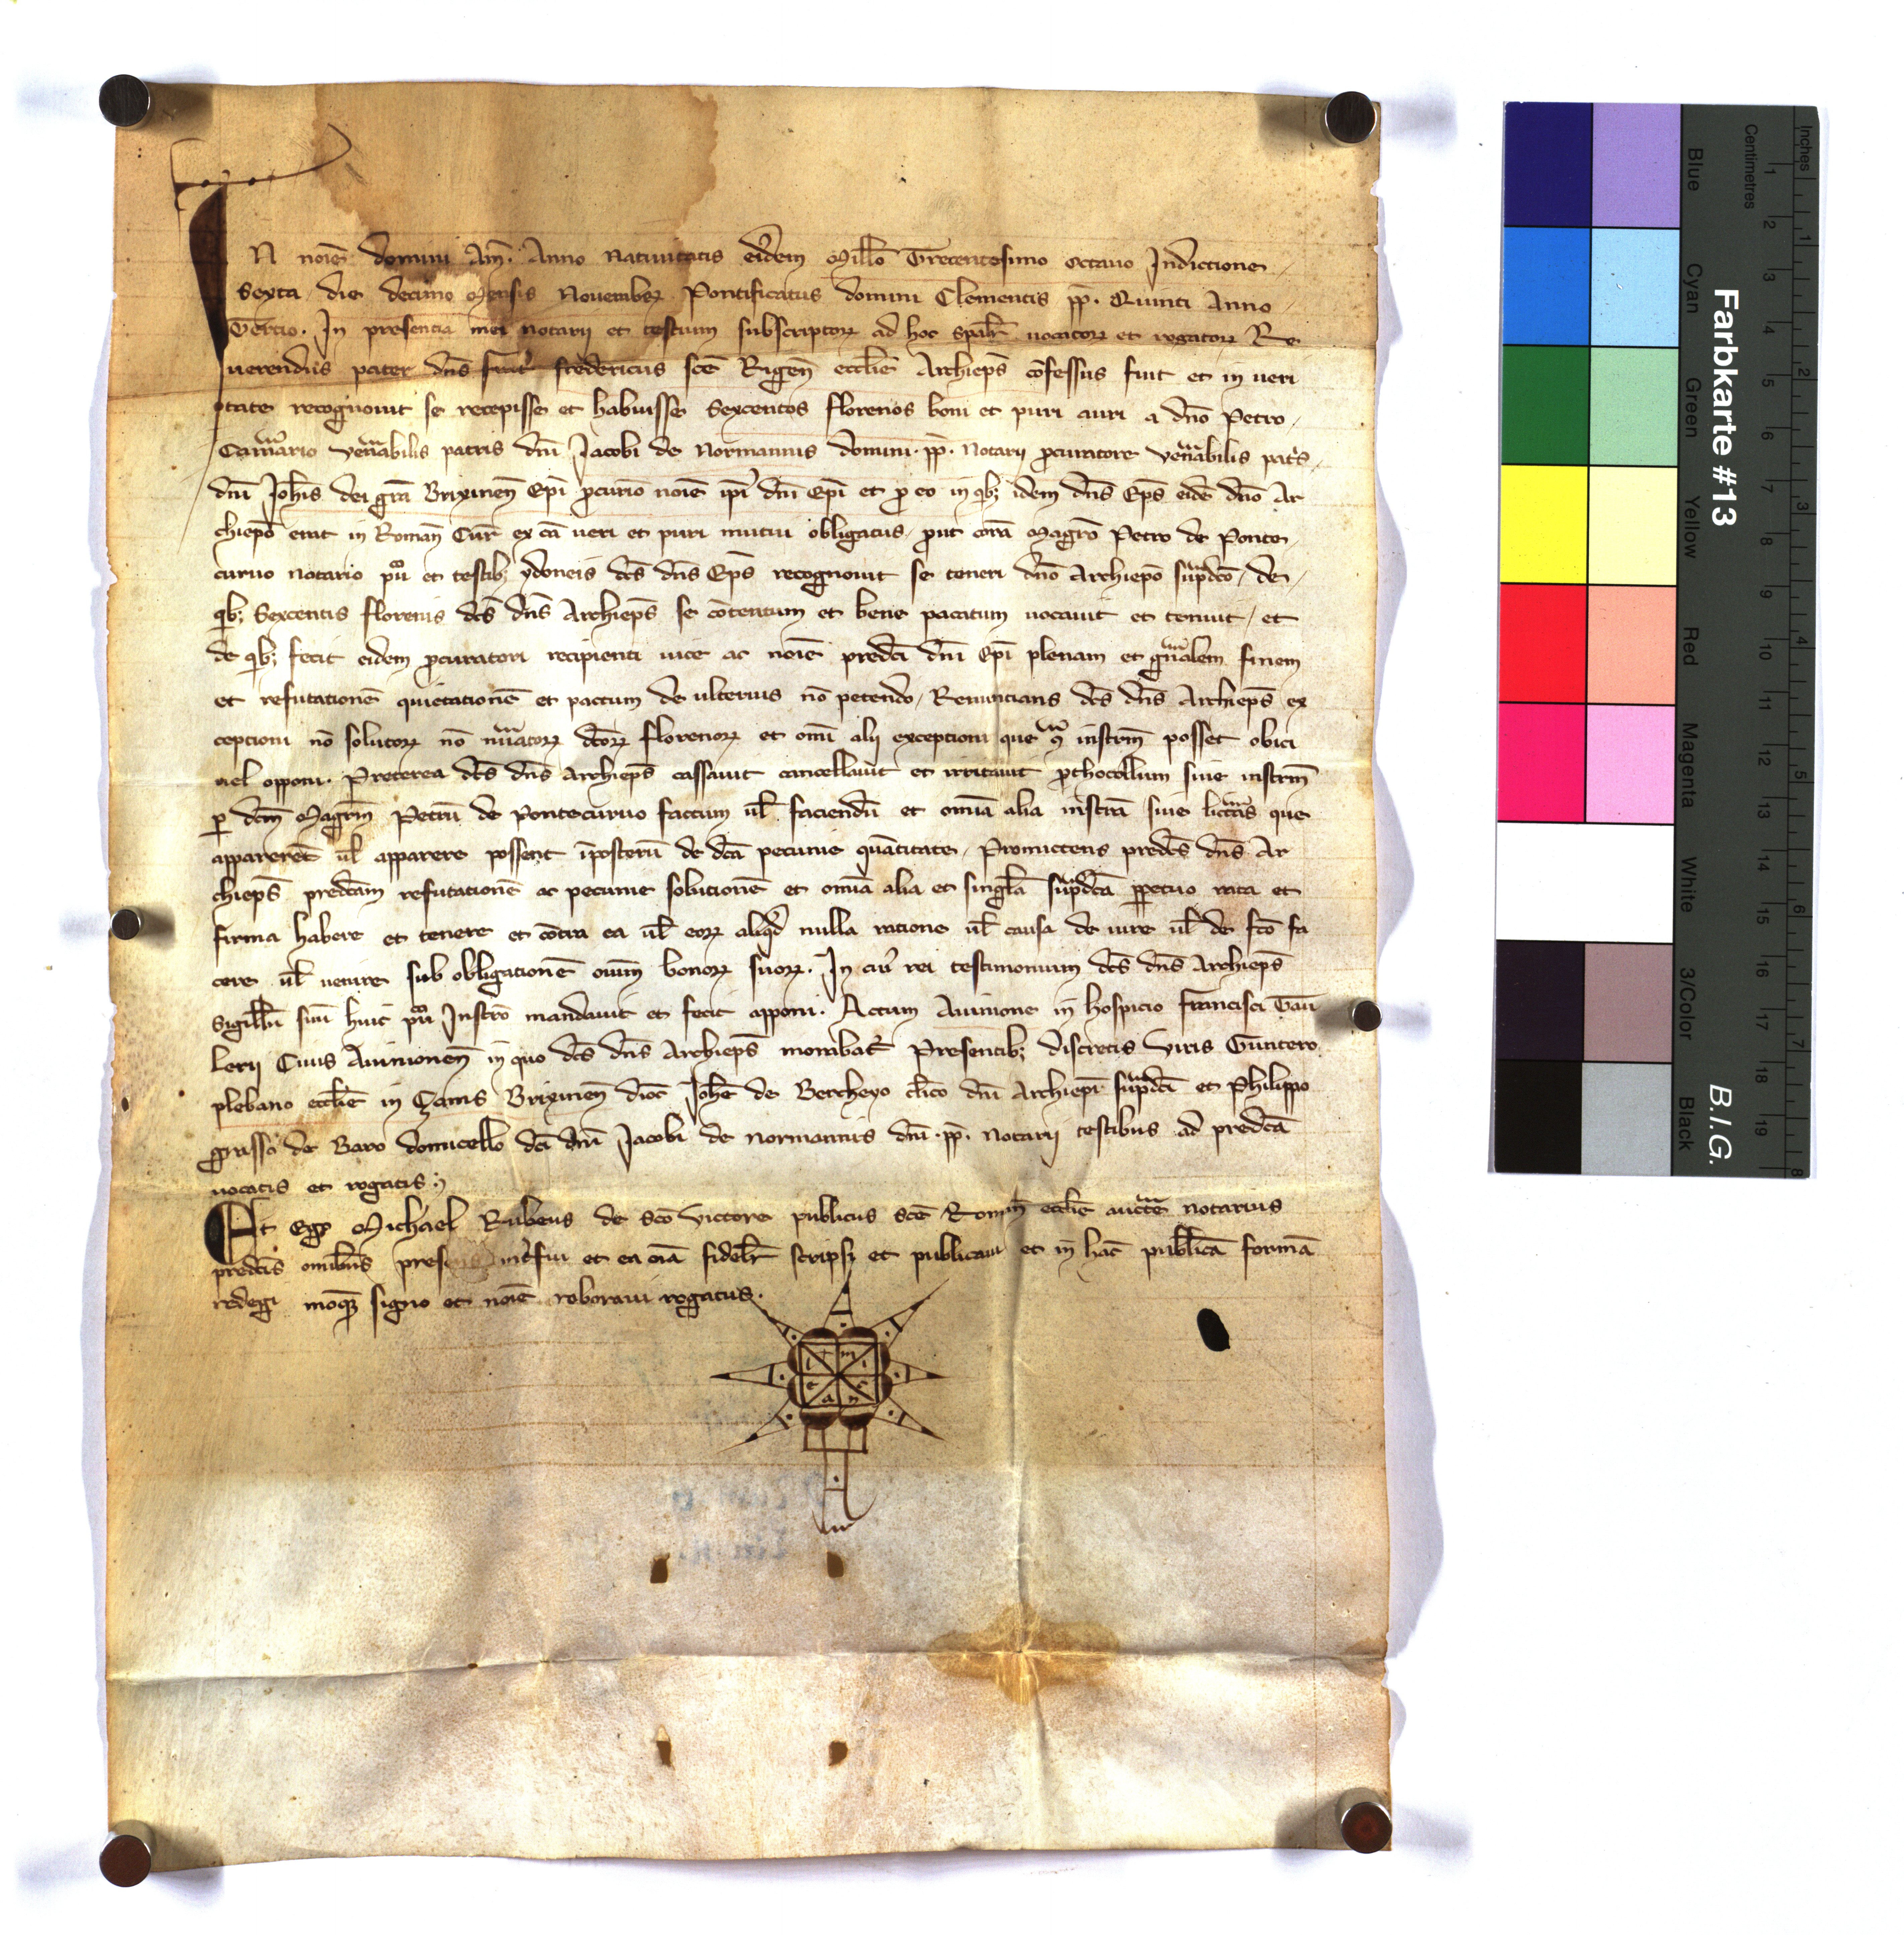 IN noiē domini Am̄. Anno Natiuitatis eiꝰdem Mill̄o Trecentesimo octauo Indictione
Sexta, die decimo Mensis Nouembꝝ Pontificatus domini Clementis pp̄. Quinti Anno
Tertio. In presencia mei notarij et testium subscriptoꝝ ad hoc spālr̄ uocatoꝝ et rogatoꝝ Re
uerendus pater dn̄s fredericus sc̄e Rigen̄ eccl̄ie Archiep̄s cōfessus fuit et in ueri
tate recognouit se recepisse et habuisse Sexcentos florenos boni et puri auri a dn̄o Petro
Cam̄ario ven̄abilis patris dn̄i Jacobi de Normannis domini .pp̄. Notarij ꝓcuratore ven̄abilis pat̄s
dn̄i Joh̄is dei gr̄a Brixinen̄ Ep̄i ꝓcur̄io noiē ip̄i dn̄i Ep̄i et ꝓ eo in qb; idem dn̄s Ep̄s eidē dn̄o Ar
chiep̄o erat in Roman̄ Cur̄ ex cā ueri et puri mutui obligatus, ꝓut corā Magr̄o Petro de Ponte
curuo notario pu̅ᶜᵒ et testib; ydoneis dc̄s dn̄s Ep̄s recognouit se teneri dn̄o Archiep̄o sup̄dc̄o, de
qb; Sexcentis florenis dc̄s dn̄s Archiep̄s se cōtentum et bene pacatum uocauit et tenuit, et
de qb; fecit eidem ꝓcuratori recipienti uice ac noiē predc̄i dn̄i Ep̄i plenam et gn̄alem finem
et refutationē quietationē et pactum de ulterius nō petendo, Renuncians dc̄s dn̄s Archiep̄s ex
ceptioni nō solutoꝝ nō nu̅atoꝝ dc̄oꝝ florenoꝝ et om̄i alij exceptioni que ꝯᵃ instrm̄ posset obici
uel opponi. Preterea dc̄s dn̄s Archiep̄s cassauit cancellauit et irritauit ꝓthocollum siue instrm̄
ꝑ dc̄m Magr̄m Petrū de Pontecuruo factum ul̄ faciendū et om̄ia alia instr̄a siue lict̄as que
apparerēt ul̄ apparere possent īposterū de dc̄a pecunie quātitate, Promictens predc̄s dn̄s Ar
chiep̄s predc̄am refutationē ac pecunie solutionē et om̄ia alia et singl̄a sup̄dc̄a ꝑpetuo rata et
firma habere et tenere et cōtra ea ul̄ eoꝝ aliqd̄ nulla ratione ul̄ causa de iure ul̄ de fc̄o fa
cere ul̄ uenire sub obligationē om̄iū bonoꝝ suoꝝ. In cuiꝰ rei testimonium dc̄s dn̄s Archiep̄s
Sigillū suū huic pu̅ᶜᵒ Instr̄o mandauit et fecit apponi. Actum Auinione in hospicio francisci Gau
lerij Ciuis Auinionen̄ in quo dc̄s dn̄s Archiep̄s morabat̄ Presentib; discretis Viris Guntero
plebano eccl̄ie in Çams Brixinen̄ dioc̄ Joh̄e de Bercheyo cl̄ico dn̄i Archiep̄i sup̄dc̄i et Philippo
grasso de Baro domicello dc̄i dn̄i Jacobi de normannis dn̄i .pp̄. Notarij testibus ad predc̄a
uocatis et rogatis.
Et Ego Michael Rubeus de Sc̄o Victore publicus sc̄e Roman̄ eccl̄ie auct̄e notarius
predc̄is omībus presens int̄fui et ea oīa fidelr̄ scripsi et publicaui et in hāc publicā formā
redegi meoqꝫ signo et noiē roboraui rogatus.
Farbkarte #13
B.I.G.
Inches
Centimetres
Blue
Cyan
Green
Yellow
Red
Magenta
White
3/Color
Black
1 2 3 4 5 6 7 8 9 10 11 12 13 14 15 16 17 18 19
1 2 3 4 5 6 7 8